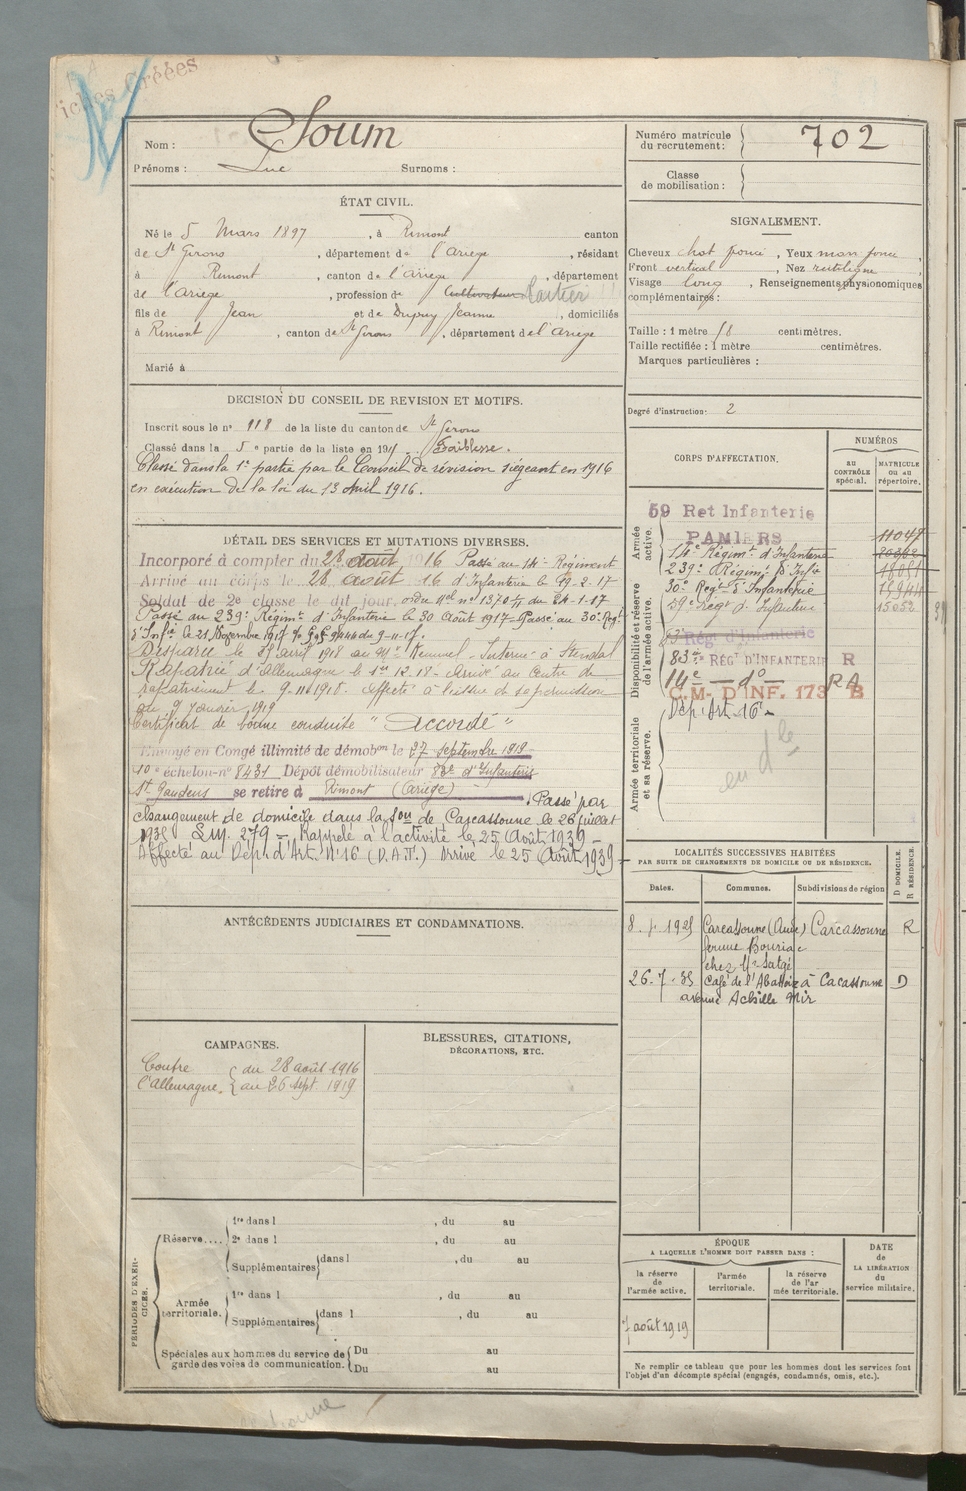 Fiches Créées
Nom : Soum
Prénoms : Luc Surnoms :
ÉTAT CIVIL.
Né le 5 Mars 1897, à Rimont canton
de St Girons, département de l'Ariège, résidant
à Rimont, canton de l'Ariège, département
de l'Ariège, profession de Cultivateur
fils de Jean et de Dupuy Jeanne, domiciliés
à Rimont, canton de St Girons, département de l'Ariège
Marié à
DECISION DU CONSEIL DE REVISION ET MOTIFS.
Inscrit sous le n° 118 de la liste du canton de St Girons
Classé dans la 5e partie de la liste en 191 Faiblesse.
Classé dans la 1e partie par le Conseil de révision siégeant en 1916
en exécution de la loi du 13 Avril 1916.
DÉTAIL DES SERVICES ET MUTATIONS DIVERSES.
Incorporé à compter du 28 août 1916 Passé au 14e Régiment
Arrivé au corps le 28 août 16 d'Infanterie le 2-17
Soldat de 2e classe le dit jour, ordre n° 1370 du 24-1-17
Passé au 239e Régimt d'Infanterie le 30 Août 1917 - Passé au 30e Régt
d'Infie le 21 Novembre 1917 du 9-11-17.
Disparu le 25 avril 1918 au Mt Kemmel - Interné à Stendal
Rapatrié d'Allemagne le 1er 12.18 - Arrivé au Centre de
rapatriement le 1918. affecté à l'issue de sa permission
9 Janvier 1919
Certificat de bonne conduite "Accordé"
Envoyé en Congé illimité de démobon le 27 septembre 1919
10e échelon n° 8431 Dépôt démobilisateur 83e d'Infanterie
St Gaudens se retire à Rimont (Ariège). Passé par
changement de domicile dans la son de Carcassonne le 26 juillet
1935 279 - Rappelé à l'activité le 25 Août 1939 -
Affecté au Dép. d'Art. N° 16 Arrivé le 25 Août 1939 -
ANTÉCÉDENTS JUDICIAIRES ET CONDAMNATIONS.
CAMPAGNES.
Contre du 28 août 1916
l'Allemagne. au 26 sept. 1919
BLESSURES, CITATIONS,
DÉCORATIONS, ETC.
PÉRIODES D'EXERCICES.
Réserve....
1re dans l , du au
2e dans l , du au
Supplémentaires dans l , du au
Armée territoriale.
1re dans l , du au
Supplémentaires dans l , du au
Spéciales aux hommes du service de garde des voies de communication.
Du au
Du au
Numéro matricule du recrutement : 702
Classe de mobilisation :
SIGNALEMENT.
Cheveux chat foncé, Yeux mar foncé,
Front vertical, Nez rectiligne,
Visage long, Renseignements physionomiques
complémentaires :
Taille : 1 mètre 58 centimètres.
Taille rectifiée : 1 mètre centimètres.
Marques particulières :
Degré d'instruction : 2
CORPS D'AFFECTATION.
NUMÉROS
AU CONTRÔLE spécial.
MATRICULE OU AU répertoire.
Armée active.
Disponibilité et réserve de l'armée active.
Armée territoriale et sa réserve.
59 Ret Infanterie
PAMIERS 11047
14e Régimt d'Infanterie
239e Régimt d'Infie
30e Régt d'Infanterie
59e Régt d'Infanterie 15052
Régt d'Infanterie
83e RÉGt D'INFANTERIE R
14e — do — RA
C.M. D'INF. 173 B
Dép. Art. 16e
LOCALITÉS SUCCESSIVES HABITÉES
PAR SUITE DE CHANGEMENTS DE DOMICILE OU DE RÉSIDENCE.
Dates. Communes. Subdivisions de région D DOMICILE. R RÉSIDENCE.
1925 Carcassonne (Aude) Carcassonne R
ferme Bouriac
chez Mr Satgé
26-7-35 Café de l'Abattoir à Cacassonne D
avenue Achille Mir
ÉPOQUE
A LAQUELLE L'HOMME DOIT PASSER DANS :
la réserve de l'armée active.
l'armée territoriale.
la réserve de l'ar mée territoriale.
DATE de LA LIBÉRATION du service militaire.
7 août 1919
Ne remplir ce tableau que pour les hommes dont les services font
l'objet d'un décompte spécial (engagés, condamnés, omis, etc.).